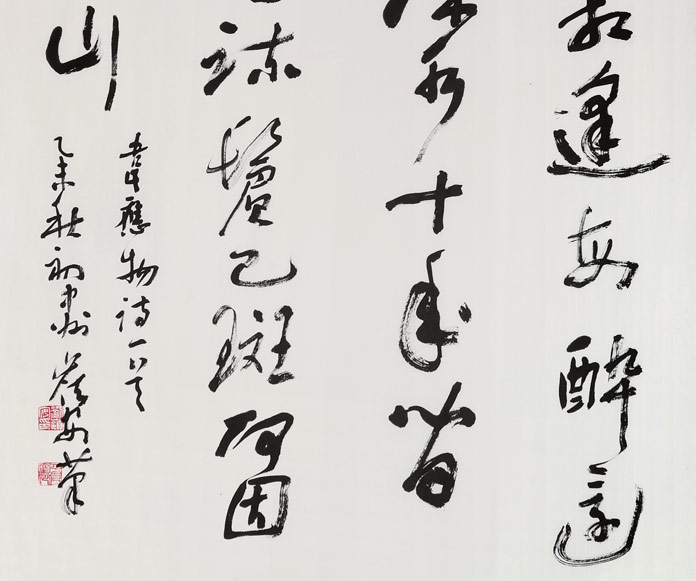 相逢每醉還
流水十年間
疏鬢已斑何因
山
韋應物詩一首
乙未秋初中州